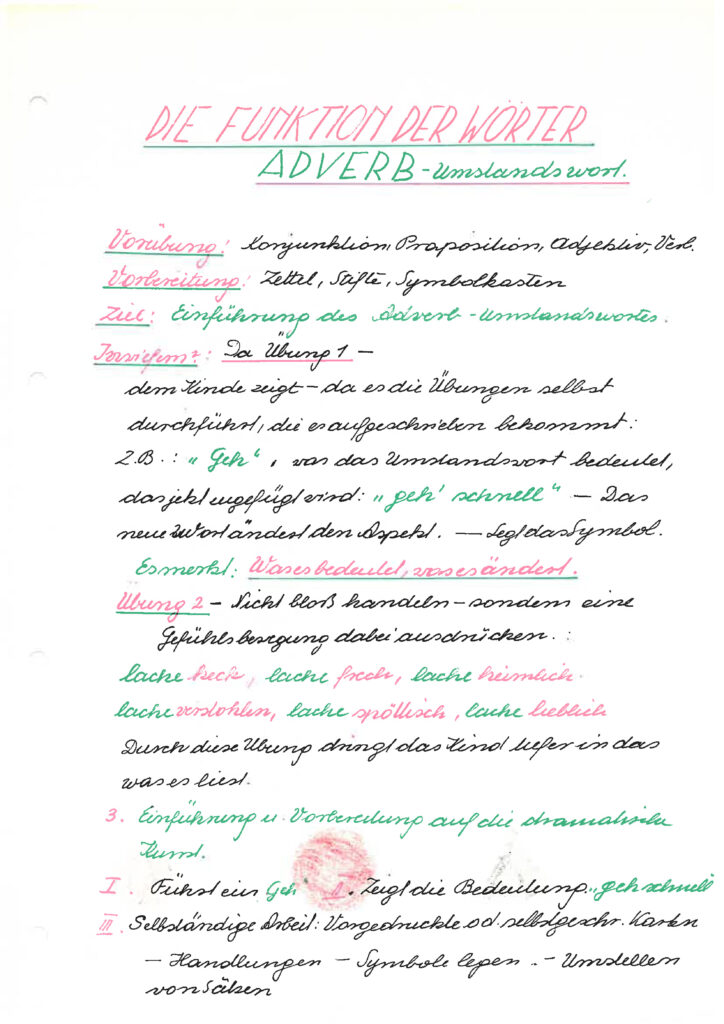 DIE FUNKTION DER WÖRTER
ADVERB - Umstandswort.
Vorübung: Konjunktion, Präposition, Adjektiv, Verb.
Vorbereitung: Zettel, Stifte, Symbolkasten
Ziel: Einführung des Adverb - Umstandswortes.
Da Übung 1 —
dem Kinde zeigt – da es die Übungen selbst
durchführt, die es aufgeschrieben bekommt:
Z.B.: "Geh", was das Umstandswort bedeutet,
das jetzt zugefügt wird: "geh' schnell" — Das
neue Wort ändert den Aspekt. — Legt das Symbol.
Es merkt: Was es bedeutet, was es ändert.
Übung 2 – Nicht bloß handeln – sondern eine
Gefühlsbewegung dabei ausdrücken.:
lache keck, lache frech, lache heimlich.
lache verstohlen, lache spöttisch, lache lieblich
Durch diese Übung dringt das Kind tiefer in das
was es liest.
3. Einführung u. Vorbereitung auf die dramatische
Kunst.
I. Führt ein Geh. Zeigt die Bedeutung "geh schnell"
III. Selbständige Arbeit: Vorgedruckte od. selbstgeschr. Karten
— Handlungen — Symbole legen. — Umstellen
von Sätzen